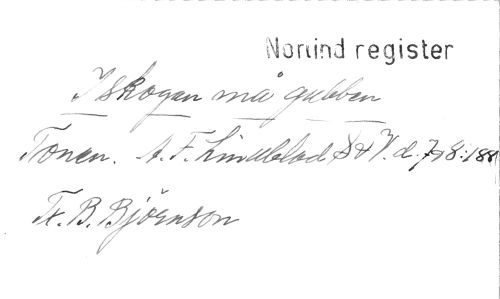 Norlind register
I skogen må gubben
Tonen. A. F. Lindblad S & V. d. 7/8: 188
Tx. B. Björnson